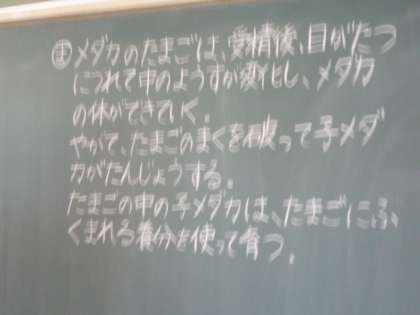 ま メダカのたまごは、受精後、日がたつ
につれて中のようすが変化し、メダカ
の体ができていく。
やがて、たまごのまくを破って子メダ
カがたんじょうする。
たまごの中の子メダカは、たまごにふ
くまれる養分を使って育つ。